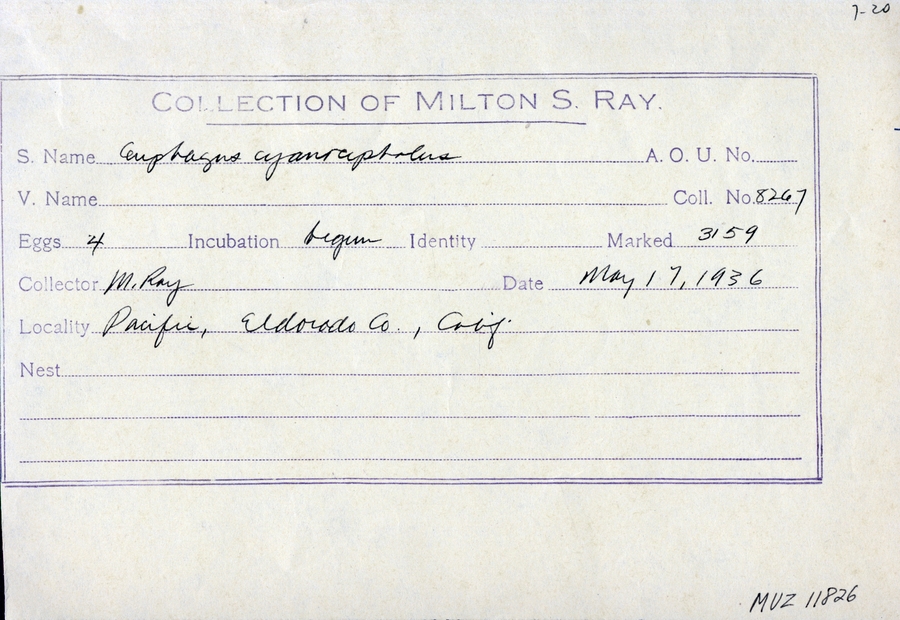 7-20
COLLECTION OF MILTON S. RAY.
S. Name Euphagus cyanocephalus A. O. U. No.
V. Name Coll. No. 8267
Eggs 4 Incubation begun Identity Marked 3159
Collector M. Ray Date May 17, 1936
Locality Pacific, Eldorado Co., Calif.
Nest
MVZ 11826